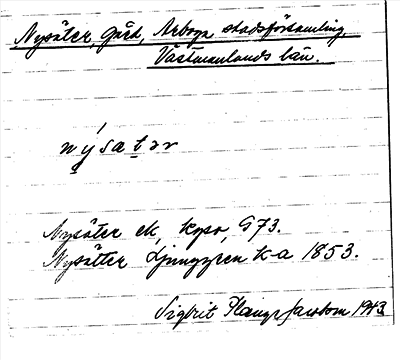 Nysäter, Gård, Arboga stadsförsamling,
Västmanlands län.
nýsatər
Nysäter ek. kopo, G73.
Nysätter Ljunggrén k-a 1853.
Sigbrit Jacobson 1943.